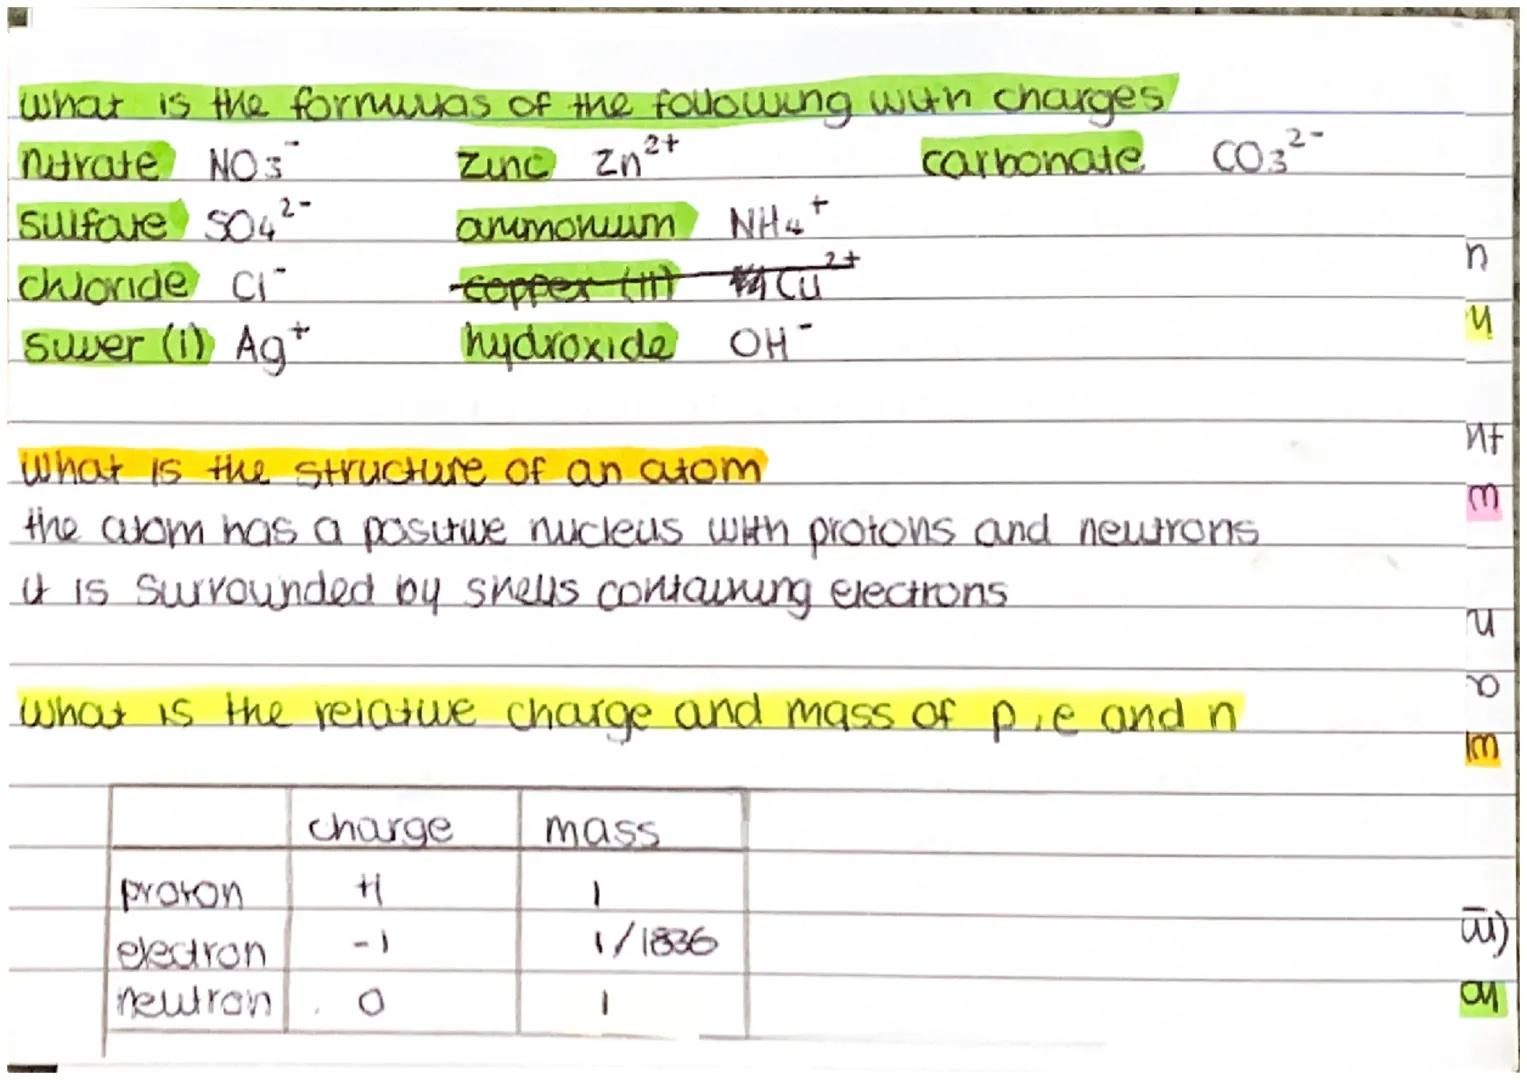 what is the formulas of the following with charges
nitrate NO₃⁻ zinc Zn²⁺ carbonate CO₃²⁻
sulfate SO₄²⁻ ammonium NH₄⁺
chloride Cl⁻ copper (II) Cu²⁺
silver (i) Ag⁺ hydroxide OH⁻
what is the structure of an atom
the atom has a positive nucleus with protons and neutrons
it is surrounded by shells containing electrons
what is the relative charge and mass of p, e and n
charge mass
proton +1 1
electron -1 1/1836
neutron 0 1